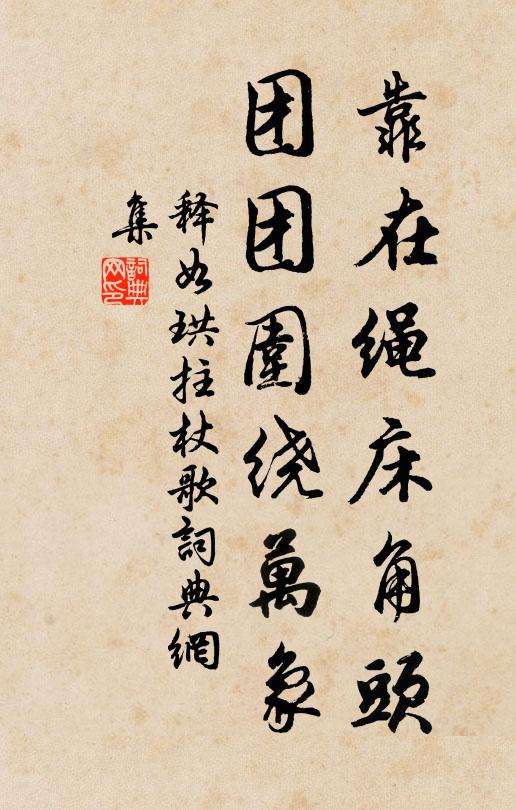 靠在绳床角頭
团团圍绕萬象
释如珙拄杖歌詞典網
集
詞典
网印